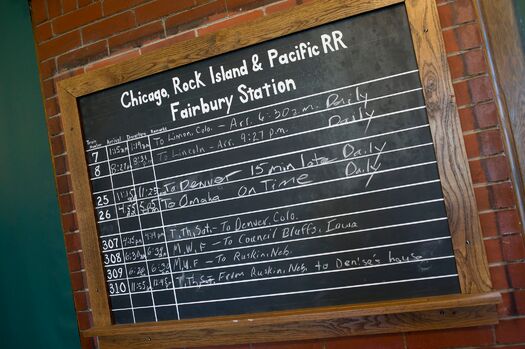 Chicago, Rock Island & Pacific RR
Fairbury Station
Train Number Arrival Departure Remarks
7 1:15am 1:19am To Limon, Colo. - Arr. 6:30a.m. Daily
8 8:27 8:31 To Lincoln - Arr. 9:27 p.m. Daily
25 11:15 11:23 To Denver 15 min late Daily
26 4:55 5:05 To Omaha on Time Daily
307 T, Th, Sat. - To Denver, Colo.
308 6:30 6:39 M, W, F - To Council Bluffs, Iowa
309 6:20 6:30 M, W, F - To Ruskin, Neb.
310 T, Th, Sat. From Ruskin, Neb. to Denise's house